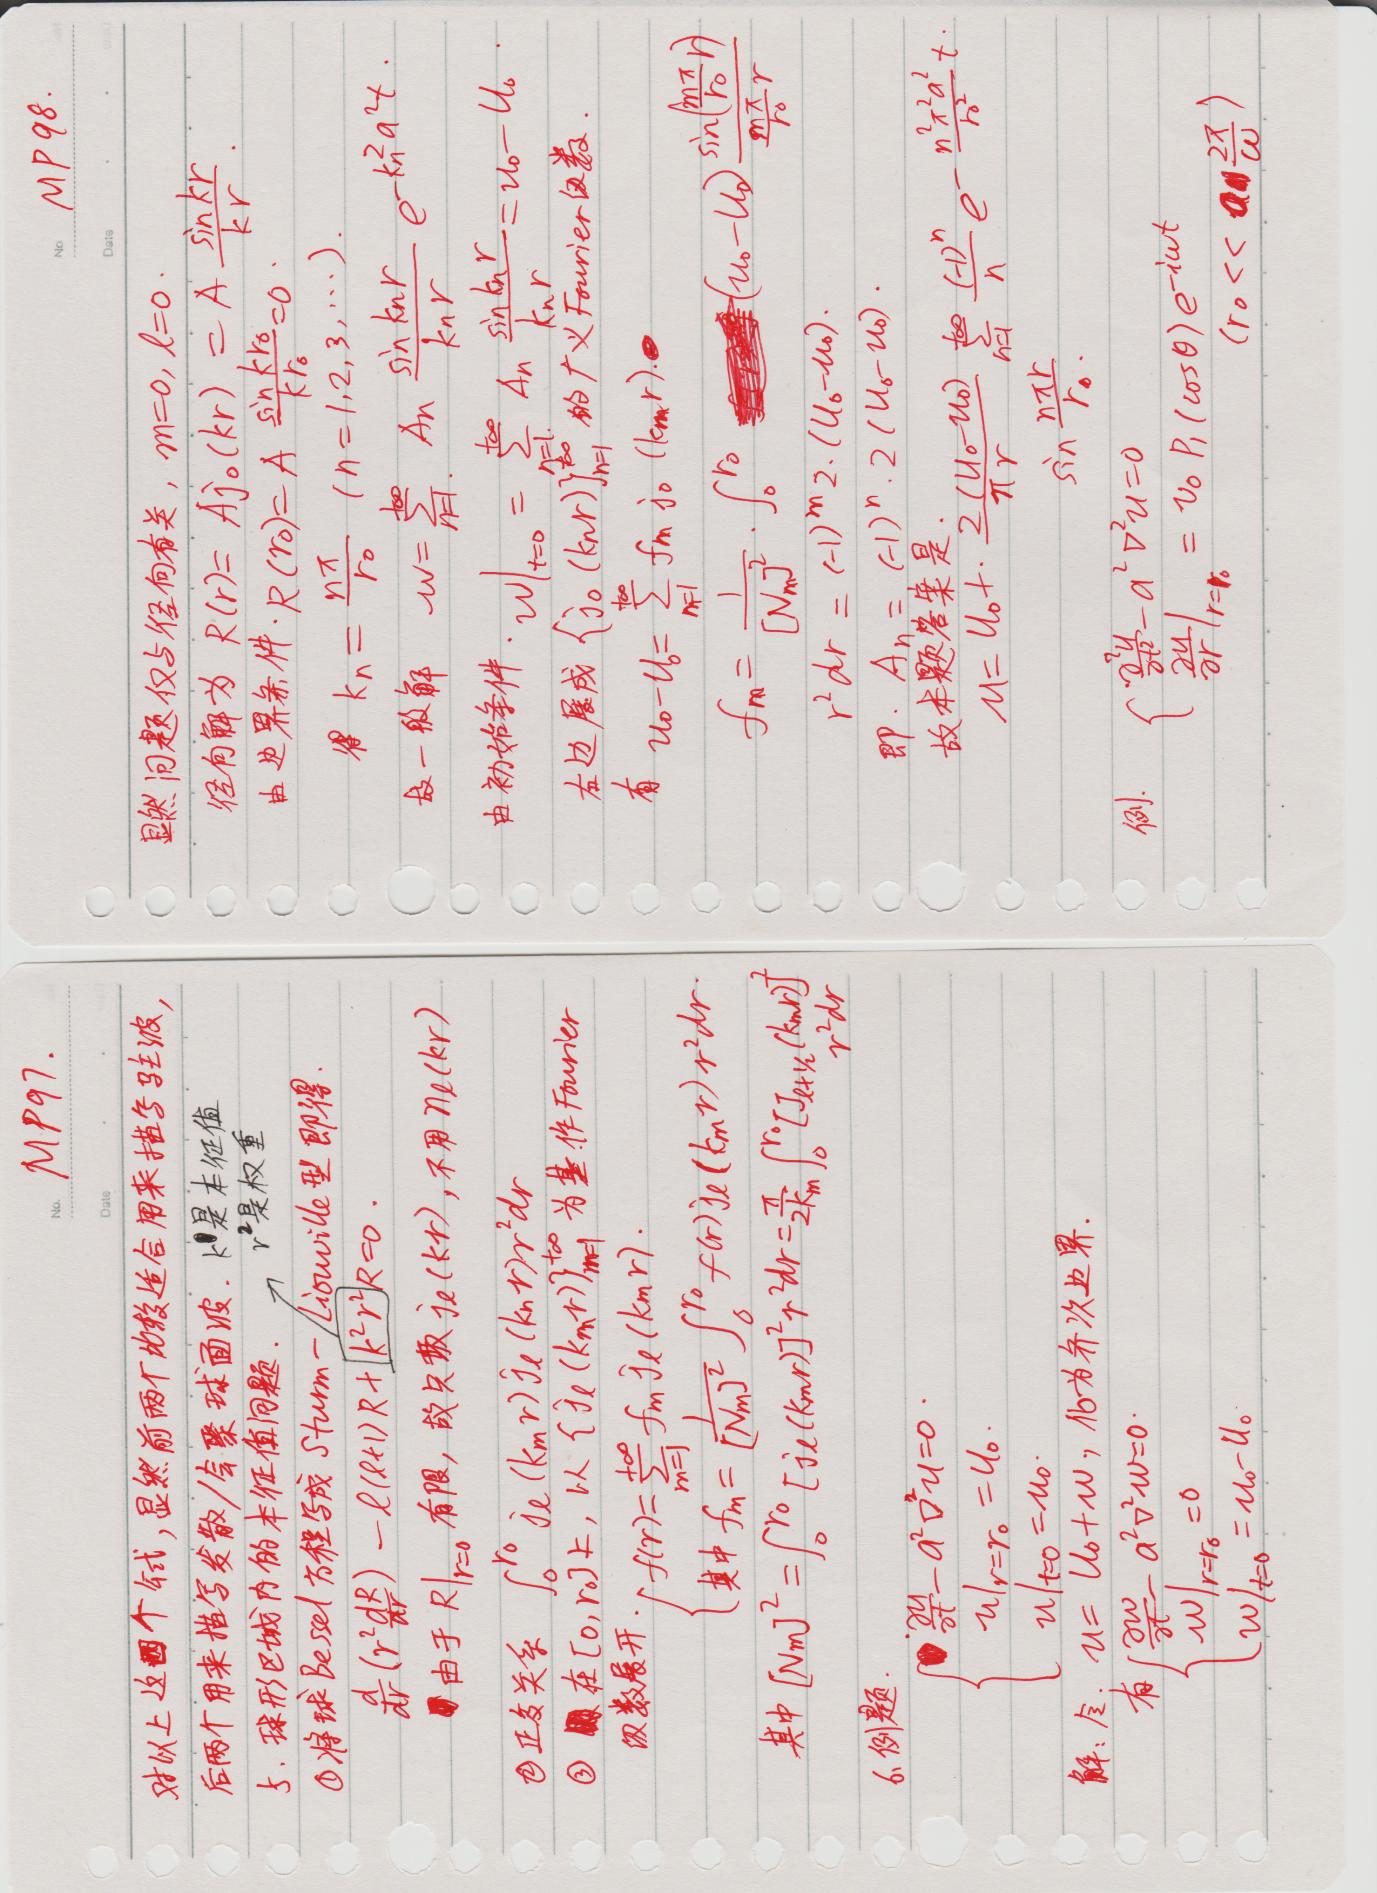 No. MP97.
Date
对以上这四个公式,显然前两个比较适合用来描写驻波,
后两个用来描写发散/会聚球面波. k²是本征值
r²是权重
5. 球形区域内的本征值问题.
①将球Bessel方程写成Sturm-Liouville型即得.
d/dr(r² dR/dr) - l(l+1)R + k²r²R=0.
由于R|r=0有限,故只取jl(kr),不用nl(kr)
②正交关系 ∫₀^r₀ jl(kmr)jl(knr)r²dr
③ 在[0,r₀]上,以{jl(kmr)}m=1^+∞为基作Fourier
级数展开. { f(r)=Σm=1^+∞ fm jl(kmr).
其中 fm = 1/[Nm]² ∫₀^r₀ f(r)jl(kmr)r²dr.
其中[Nm]² = ∫₀^r₀ [jl(kmr)]²r²dr = π/2km ∫₀^r₀ [Jl+1/2(kmr)]²
r²dr
6. 例题.
{ ∂u/∂t - a²∇²u=0.
u|r=r₀ = U₀.
u|t=0 = u₀.
解:令. u= U₀+w, 化为齐次边界.
有 { ∂w/∂t - a²∇²w=0.
w|r=r₀ =0
w|t=0 = u₀-U₀
No MP98.
Date
显然问题仅与径向有关, m=0, l=0.
径向解为 R(r)= Aj₀(kr) = A sinkr/kr.
由边界条件. R(r₀)= A sinkr₀/kr₀ =0.
得 kn = nπ/r₀ (n=1,2,3,…).
故一般解 w= Σn=1^+∞ An sinknr/knr e^-kn²a²t.
由初始条件. w|t=0 = Σn=1^+∞ An sinknr/knr = u₀-U₀.
右边展成{j₀(knr)}n=1^+∞的广义Fourier级数.
有 u₀-U₀= Σn=1^+∞ fm j₀(kmr).
fm= 1/[Nm]² · ∫₀^r₀ (u₀-U₀) sin(mπ/r₀ r)/(mπ/r₀ r)
r²dr = (-1)^m 2.(U₀-u₀).
即. An = (-1)^n.2(U₀-u₀).
故本题答案是.
u= U₀+. 2(U₀-u₀)/πr Σn=1^+∞ (-1)^n/n e^-n²π²a²/r₀² t.
sin nπr/r₀.
例. { ∂²u/∂t² - a²∇²u=0
∂u/∂r|r=r₀ = v₀ P₁(cosθ)e^-iωt
(r₀<< 2π/ω)